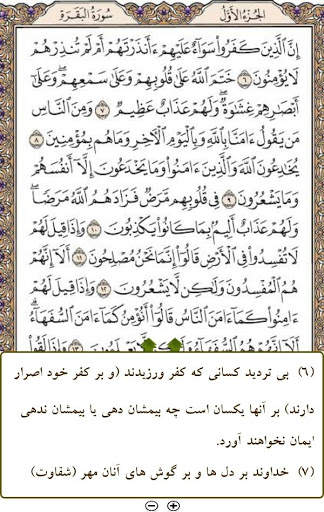 الجزء الأول
سورة البقرة
إِنَّ الَّذِينَ كَفَرُوا سَوَاءٌ عَلَيْهِمْ ءَأَنذَرْتَهُمْ أَمْ لَمْ تُنذِرْهُمْ
لَا يُؤْمِنُونَ ٦ خَتَمَ اللَّهُ عَلَىٰ قُلُوبِهِمْ وَعَلَىٰ سَمْعِهِمْ ۖ وَعَلَىٰ
أَبْصَارِهِمْ غِشَاوَةٌ ۖ وَلَهُمْ عَذَابٌ عَظِيمٌ ٧ وَمِنَ النَّاسِ
مَن يَقُولُ ءَامَنَّا بِاللَّهِ وَبِالْيَوْمِ الْآخِرِ وَمَا هُم بِمُؤْمِنِينَ ٨
يُخَادِعُونَ اللَّهَ وَالَّذِينَ ءَامَنُوا وَمَا يَخْدَعُونَ إِلَّا أَنفُسَهُمْ
وَمَا يَشْعُرُونَ ٩ فِي قُلُوبِهِم مَّرَضٌ فَزَادَهُمُ اللَّهُ مَرَضًا ۖ
وَلَهُمْ عَذَابٌ أَلِيمٌ بِمَا كَانُوا يَكْذِبُونَ ١٠ وَإِذَا قِيلَ لَهُمْ
لَا تُفْسِدُوا فِي الْأَرْضِ قَالُوا إِنَّمَا نَحْنُ مُصْلِحُونَ ١١ أَلَا إِنَّهُمْ
هُمُ الْمُفْسِدُونَ وَلَٰكِن لَّا يَشْعُرُونَ ١٢ وَإِذَا قِيلَ لَهُمْ
ءَامِنُوا كَمَا ءَامَنَ النَّاسُ قَالُوا أَنُؤْمِنُ كَمَا ءَامَنَ السُّفَهَاءُ ۗ
أَلَا إِنَّهُمْ هُمُ السُّفَهَاءُ وَلَٰكِن لَّا يَعْلَمُونَ ١٣ وَإِذَا لَقُوا
(۶) بی تردید کسانی که کفر ورزیدند (و بر کفر خود اصرار
دارند) بر آنها یکسان است چه بیمشان دهی یا بیمشان ندهی
ایمان نخواهند آورد.
(۷) خداوند بر دل ها و بر گوش های آنان مهر (شقاوت)